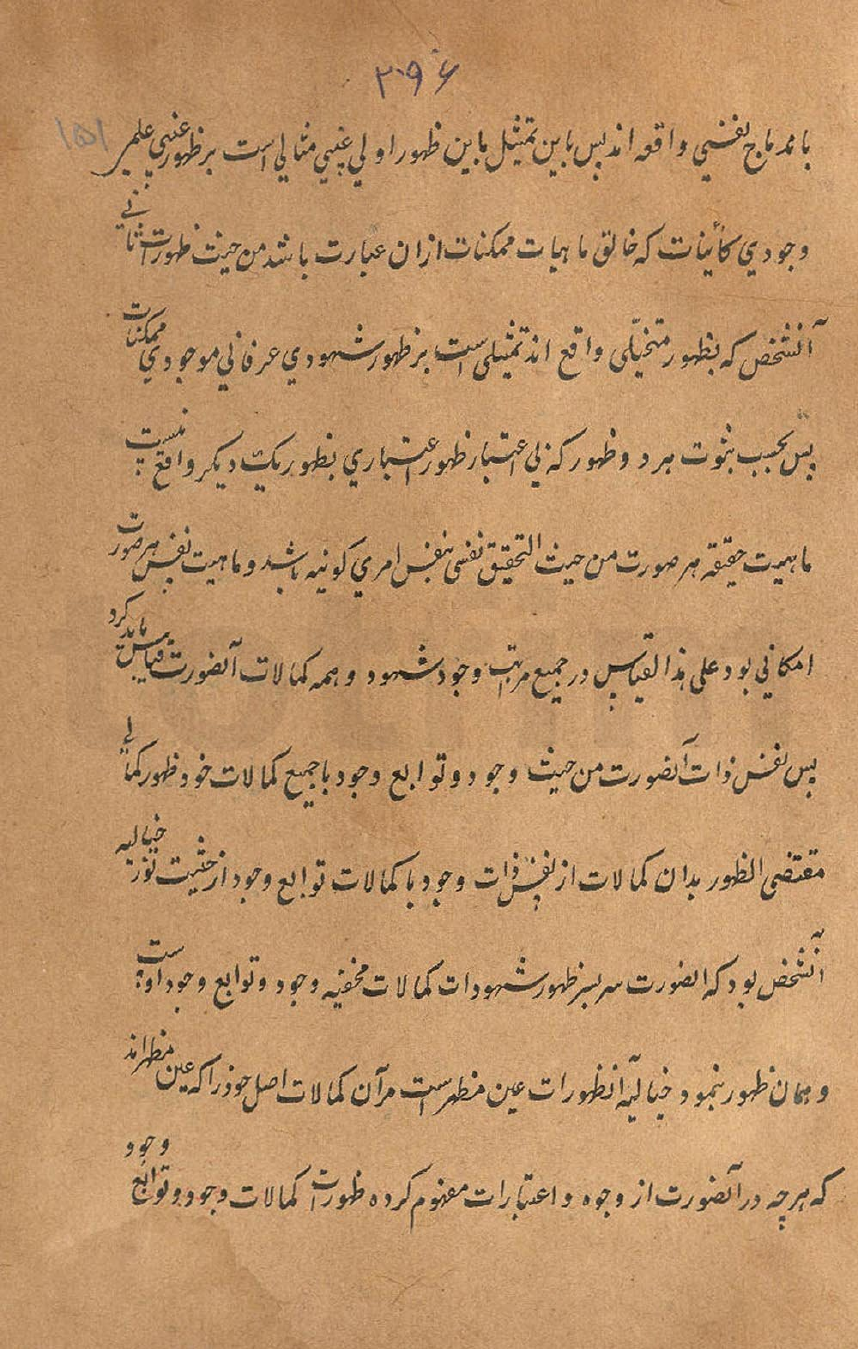 ۳۹۶
۱۵۱
باندماج نفسی واقع اند پس باین تمثیل باین ظهور اولی غیبی مثالی است بر ظهور غیبی علمی
وجودی کائنات که خالق ماهیات ممکنات ازان عبارت باشد من حیث ظهورات ثانی
آنشخص که بظهور متخیلی واقع اند تمثیلی است بر ظهور شهودی عرفانی موجودی ممکنات
پس بحسب ثبوت هر دو ظهور که بی اعتبار ظهور اعتباری بظهور یک دیگر واقع نیست
ماهیت حقیقه هر صورت من حیث التحقیق نفسی بنفس امری کونیه باشد و ماهیت نفس هر صورت
امکانی بود علی هذا القیاس در جمیع مراتب وجود شهود و همه کمالات آنصورت قیاس باید کرد
پس نفس ذات آنصورت من حیث وجود و توابع وجود با جمیع کمالات خود ظهور کمالی
مقتضی الظهور بدان کمالات از نفس ذات وجود با کمالات توابع وجود از حیثیت خیالیه
آنشخص بود که انصورت سربسر ظهور شهودات کمالات مخفیه وجود و توابع وجود اوست
و همان ظهور بنمود خیالیه انظهورات عین مظهر است مرآن کمالات اصل خود را که عین مظهراند
که هرچه در آنصورت از وجوه و اعتبارات مفهوم کرده ظهورات کمالات وجود و توابع وجود